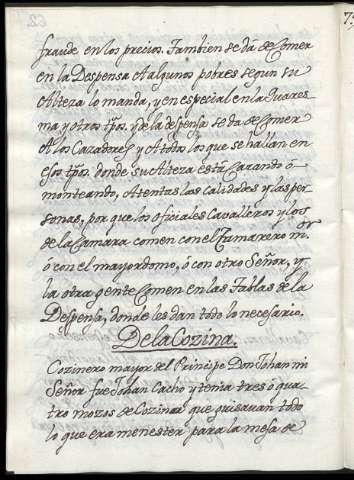 fraude en los precios. Tambien se dá de Comer
en la Despensa a algunos pobres segun su
Alteza lo manda, y en especial en la Quares-
ma y otros tpos. y de la despensa se da de Comer
A los Cazadores y A todos los que se hallan en
esos tpos. donde su Alteza está Cazando ó
monteando, Atentas las calidades y las per-
sonas, por que los oficiales Cavalleros y los
de la Camara comen con el Camarero mor
ó con el mayordomo, ó con otro Señor, y
la otra gente Comen en las Tablas de la
Despensa, donde les dan todo lo necesario.
De la Cozina.
Cozinero mayor del Principe Don Johan mi
Señor fue Johan Cacho y tenia tres ó qua-
tro mozos de Cozina que guisavan todo
lo que era menester para la mesa de